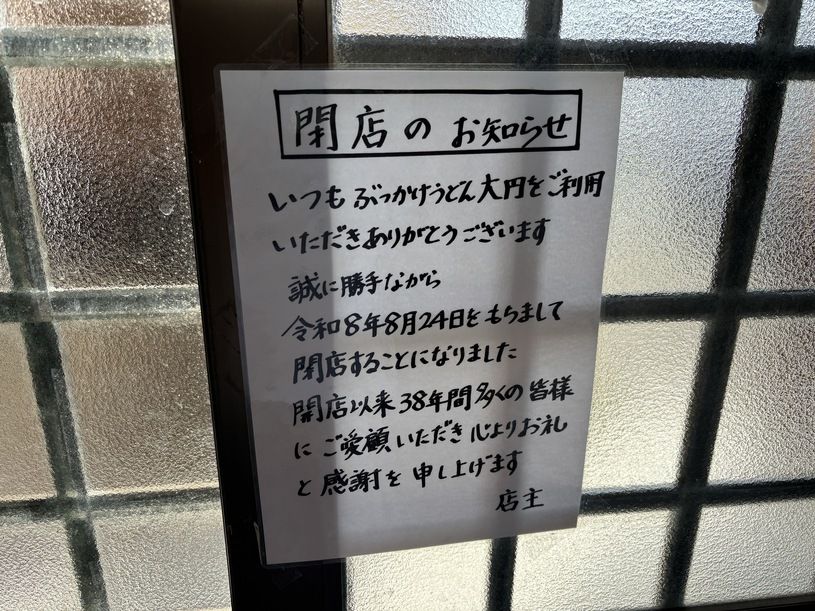 閉店のお知らせ
いつもぶっかけうどん大円をご利用
いただきありがとうございます
誠に勝手ながら
令和8年8月24日をもちまして
閉店することになりました
開店以来38年間多くの皆様
にご愛顧いただき心よりお礼
と感謝を申し上げます
店主